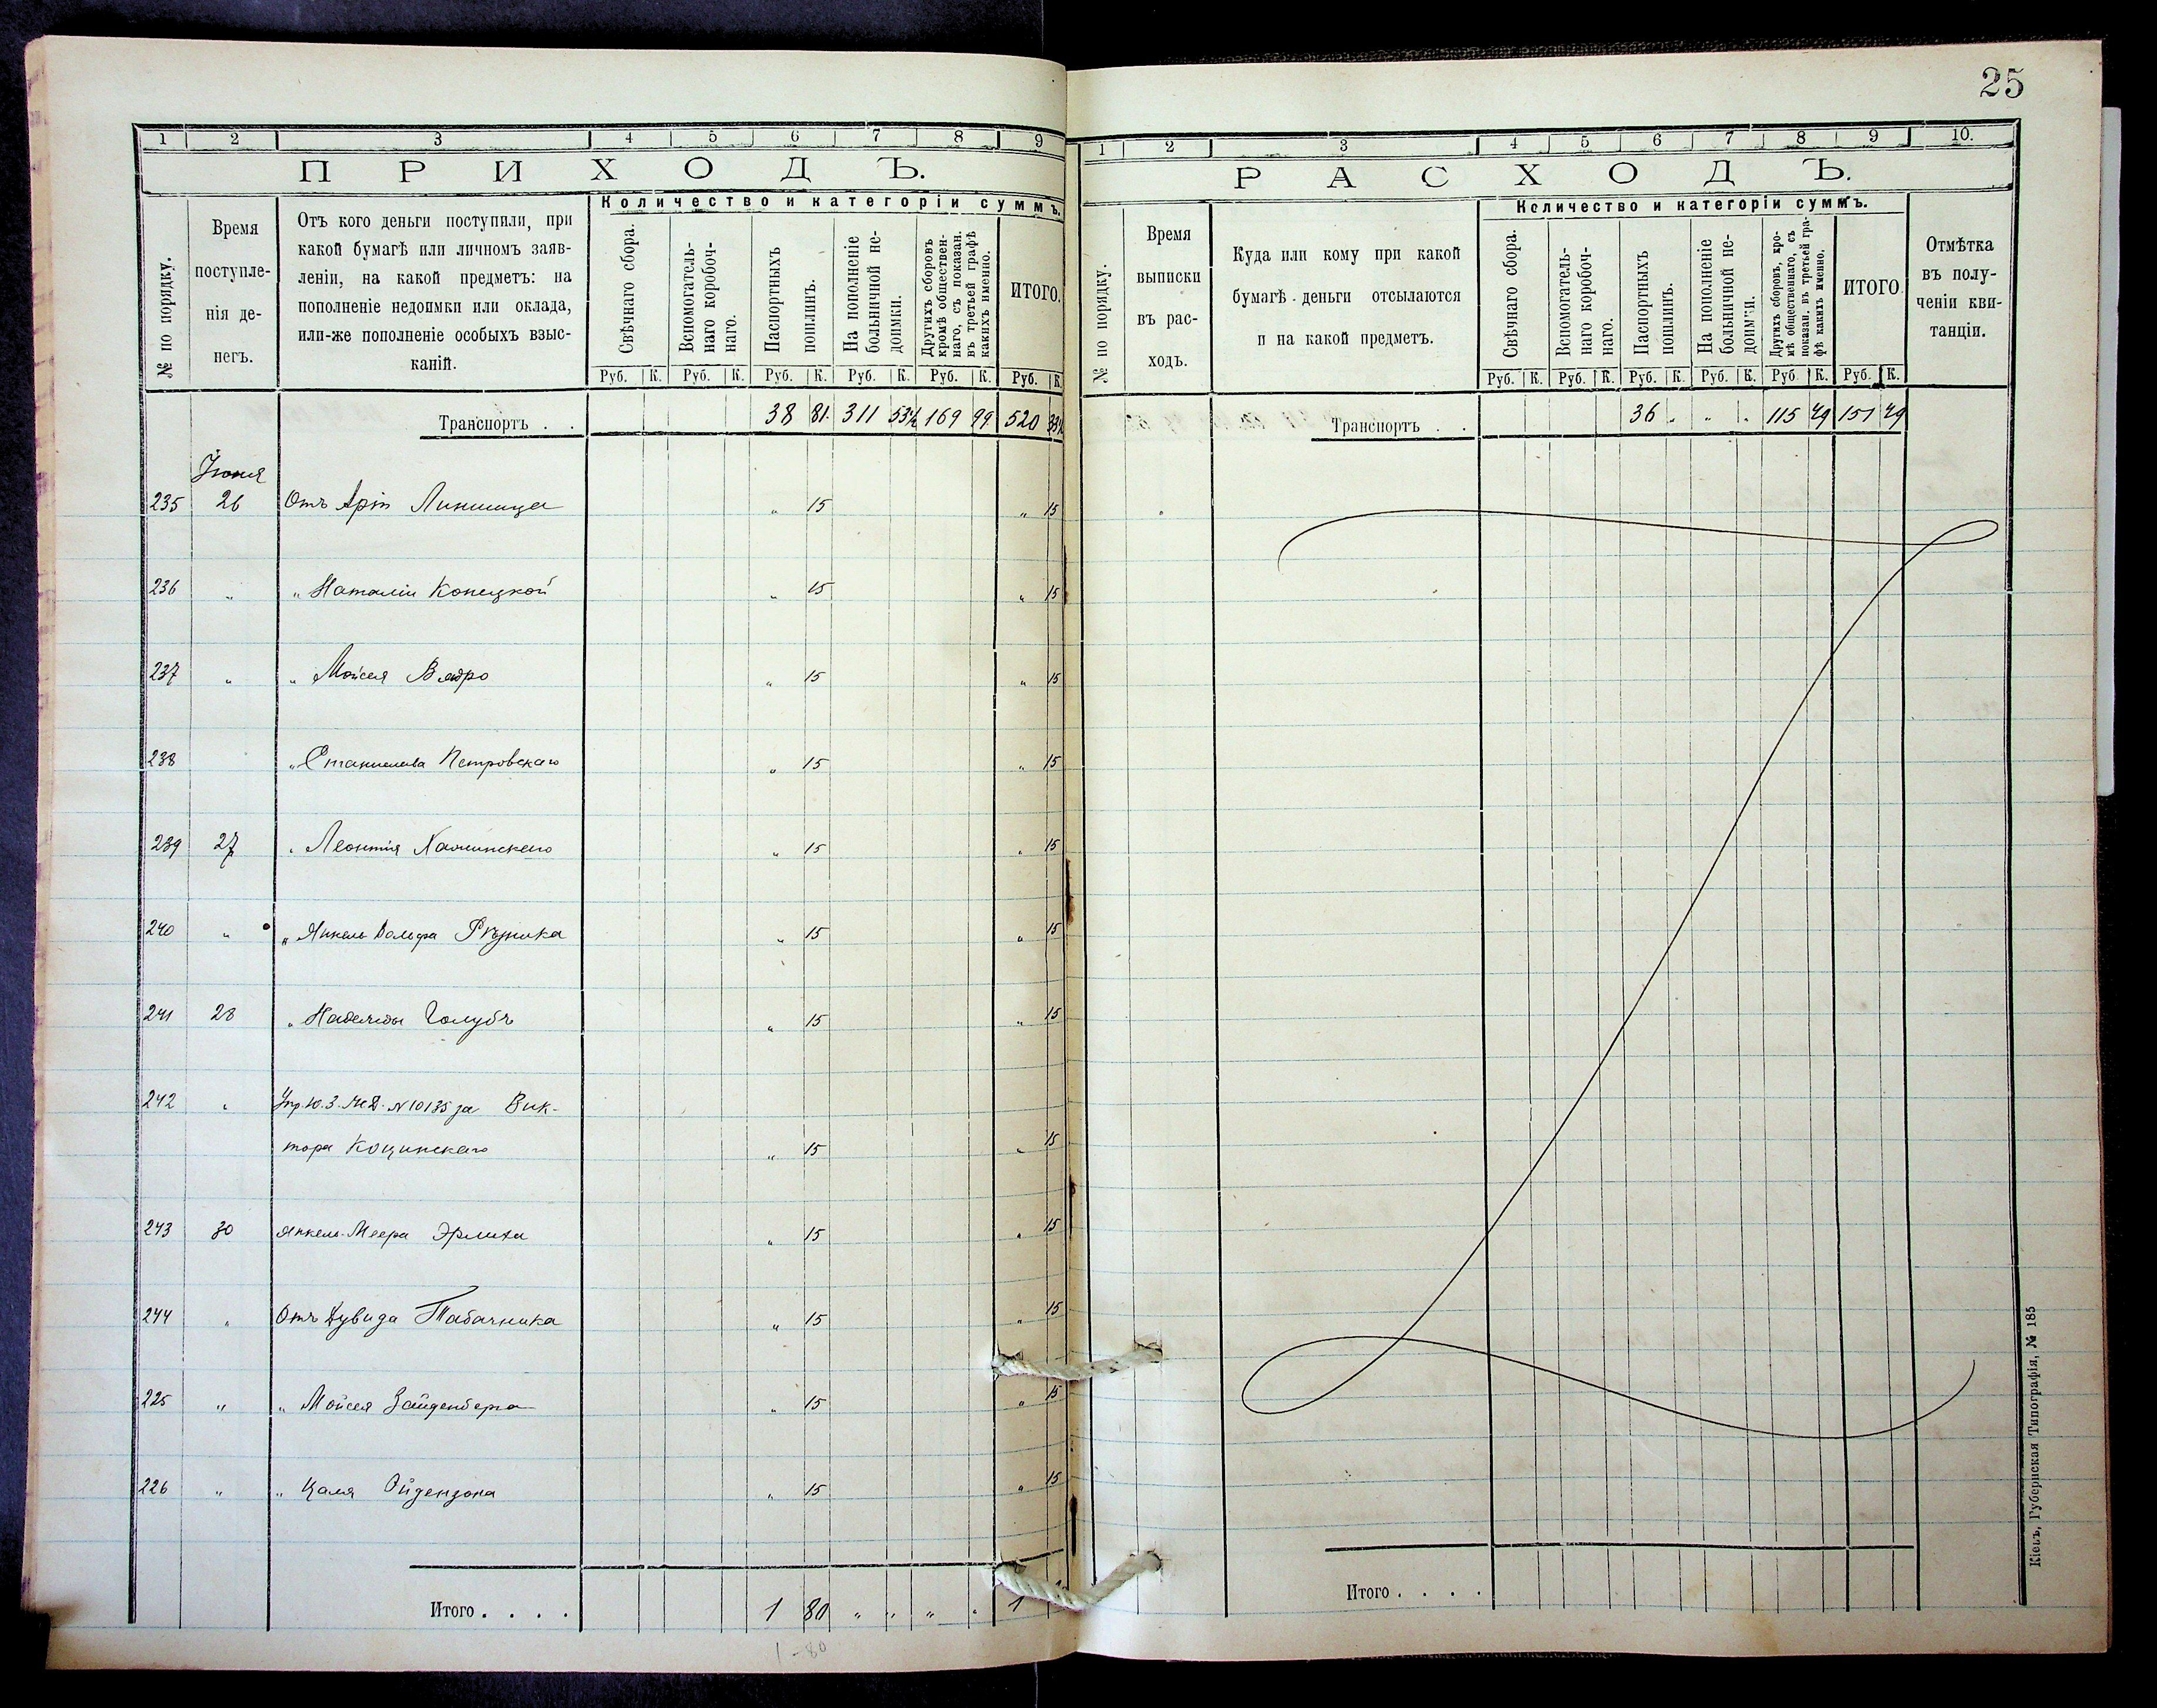 1 2 3 4 5 6 7 8 9
ПРИХОДЪ.
№ по порядку.
Время поступле-нія де-негъ.
Отъ кого деньги поступили, при
какой бумагѣ или личномъ заяв-
леніи, на какой предметъ: на
пополненіе недоимки или оклада,
или-же пополненіе особыхъ взыс-
каній.
Количество и категоріи суммъ.
Свѣчнаго сбора.
Вспомогатель-
наго коробоч-
наго.
Паспортныхъ
пошлинъ.
На пополненіе
больничной не-
доимки.
Другихъ сборовъ
кромѣ обществен-
наго, съ показан.
въ третьей графѣ
какихъ именно.
ИТОГО.
Руб. К. Руб. К. Руб. К. Руб. К. Руб. К. Руб. К.
Транспортъ . . 38 81 311 53½ 169 99 520
Іюня
235 26 Отъ Арія Линшица " 15 " 15
236 " " Наталіи Конецкой " 15 " 15
237 " " Мойсея Вядро " 15 " 15
238 " Станислава Петровскаго " 15 " 15
239 27 " Леонтія " 15 " 15
240 " " Янкель Вольфа Рѣзника " 15 " 15
241 28 " Надежды Голубъ " 15 " 15
242 " Упр. Ю. З. Ж. Д. №10135 за Вик-
тора Коцинскаго " 15 " 15
243 30 Янкель-Меера Эрлиха " 15 " 15
244 " Отъ Дувида Табачника " 15 " 15
225 " " Мойсея Зайденберга " 15 " 15
226 " " Цаля Ойдензона " 15 " 15
Итого . . . . 1 80 " " " " 1
1-80
25
1 2 3 4 5 6 7 8 9 10.
РАСХОДЪ.
№ по порядку.
Время
выписки
въ рас-
ходъ.
Куда или кому при какой
бумагѣ деньги отсылаются
и на какой предметъ.
Количество и категоріи суммъ.
Свѣчнаго сбора.
Вспомогатель-
наго коробоч-
наго.
Паспортныхъ
пошлинъ.
На пополненіе
больничной не-
доимки.
Другихъ сборовъ, кро-
мѣ общественнаго, съ
показан. въ третьей гра-
фѣ какихъ именно.
ИТОГО
Отмѣтка
въ полу-
ченіи кви-
танціи.
Руб. К. Руб. К. Руб. К. Руб. К. Руб. К. Руб. К.
Транспортъ . . 36 . " . 115 49 151 49
Итого . . . .
Кіевъ, Губернская Типографія, № 185